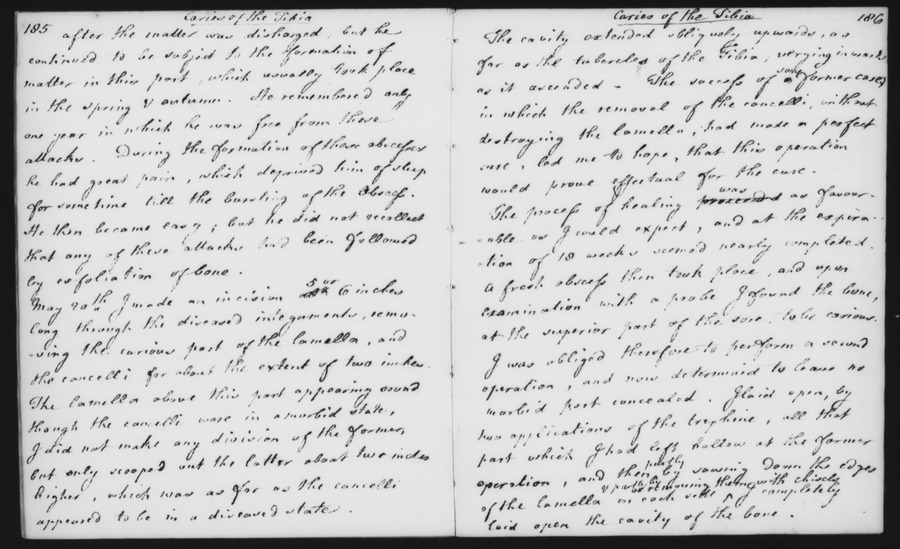 Caries of the Tibia
185 after the matter was discharged, but he
continued to be subject to the formation of
matter in this part, which usually took place
in the spring & autumn. He remembered only
one year in which he was free from these
attacks. During the formation of these abscesses
he had great pain, which deprived him of sleep
for some time till the bursting of the Abscess.
He then became easy; but he did not recollect
that any of these attacks had been followed
by exfoliation of bone.
May 20th I made an incision 5 or 6 inches
long through the diseased integuments, remo-
-ving the carious part of the lamella, and
the cancelli for about the extent of two inches.
The lamella above this part appearing sound
though the cancelli were in a morbid state,
I did not make any division of the former,
but only scooped out the latter about two inches
higher, which was as far as the cancelli
appeared to be in a diseased state.
Caries of the Tibia 186
The cavity extended obliquely upwards, as
far as the tubercles of the Tibia, verging inwards
as it ascended - The success of some former cases,
in which the removal of the cancelli, without
destroying the lamella, had made a perfect
cure, led me to hope, that this operation
would prove effectual for the cure.
The process of healing proceeded was as favour-
-able as I could expect, and at the expira-
-tion of 18 weeks seemed nearly completed.
A fresh abscess then took place, and upon
examination with a probe I found the bone,
at the superior part of the sore, to be carious.
I was obliged therefore to perform a second
operation, and now determined to leave no
morbid part concealed. I laid open, by
two applications of the trephine, all that
part which I had left hollow at the former
operation, and then partly by sawing down the edges
of the lamella on each side & partly by removing them with chisels, I completely
laid open the cavity of the bone.